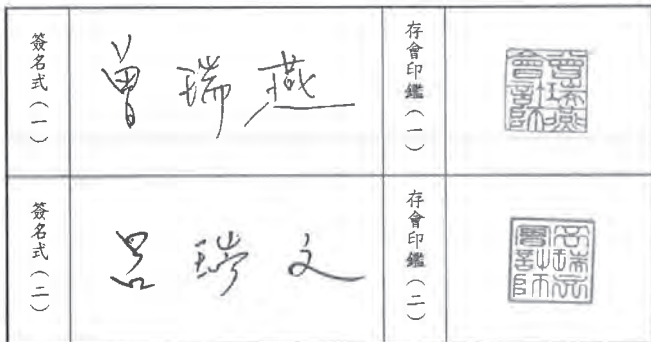 簽名式（一）
曾瑞燕
存會印鑑（一）
曾瑞燕會計師
簽名式（二）
呂瑞文
存會印鑑（二）
呂瑞文會計師